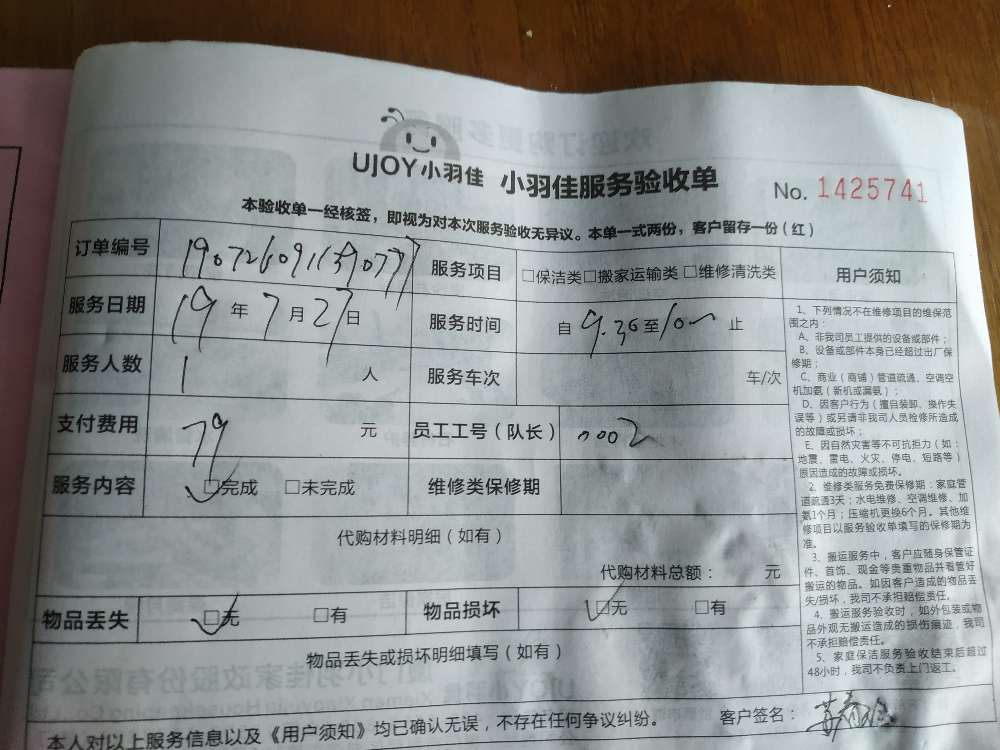 UJOY小羽佳 小羽佳服务验收单 No. 1425741
本验收单一经核签，即视为对本次服务验收无异议。本单一式两份，客户留存一份（红）
订单编号 服务项目 □保洁类□搬家运输类□维修清洗类
服务日期 19年7月27日 服务时间 自9.30至10~止
服务人数 1人 服务车次 车/次
支付费用 79元 员工工号（队长） 0002
服务内容 □完成 □未完成 维修类保修期
代购材料明细（如有）
代购材料总额： 元
物品丢失 □无 □有 物品损坏 □无 □有
物品丢失或损坏明细填写（如有）
本人对以上服务信息以及《用户须知》均已确认无误，不存在任何争议纠纷。 客户签名：
用户须知
1、下列情况不在维修项目的维保范
围之内：
A、非我司员工提供的设备或部件；
B、设备或部件本身已经超过出厂保
修期；
C、商业（商铺）管道疏通、空调空
机加氨（新机或漏氨）；
D、因客户行为（擅自装卸、操作失
误等）或另请非我司人员检修所造成
的故障或损坏；
E、因自然灾害等不可抗拒力（如：
地震、雷电、火灾、停电、短路等）
原因造成的故障或损坏。
2、维修类服务免费保修期：家庭管
道疏通3天；水电维修、空调维修、加
氨1个月；压缩机更换6个月。其他维
修项目以服务验收单填写的保修期为
准。
3、搬运服务中，客户应随身保管证
件、首饰、现金等贵重物品并看管好
搬运的物品。如因客户造成的物品丢
失/损坏，我司不承担赔偿责任。
4、搬运服务验收时，如外包装或物
品外观无搬运造成的损伤痕迹，我司
不承担赔偿责任。
5、家庭保洁服务验收结束后超过
48小时，我司不负责上门返工。